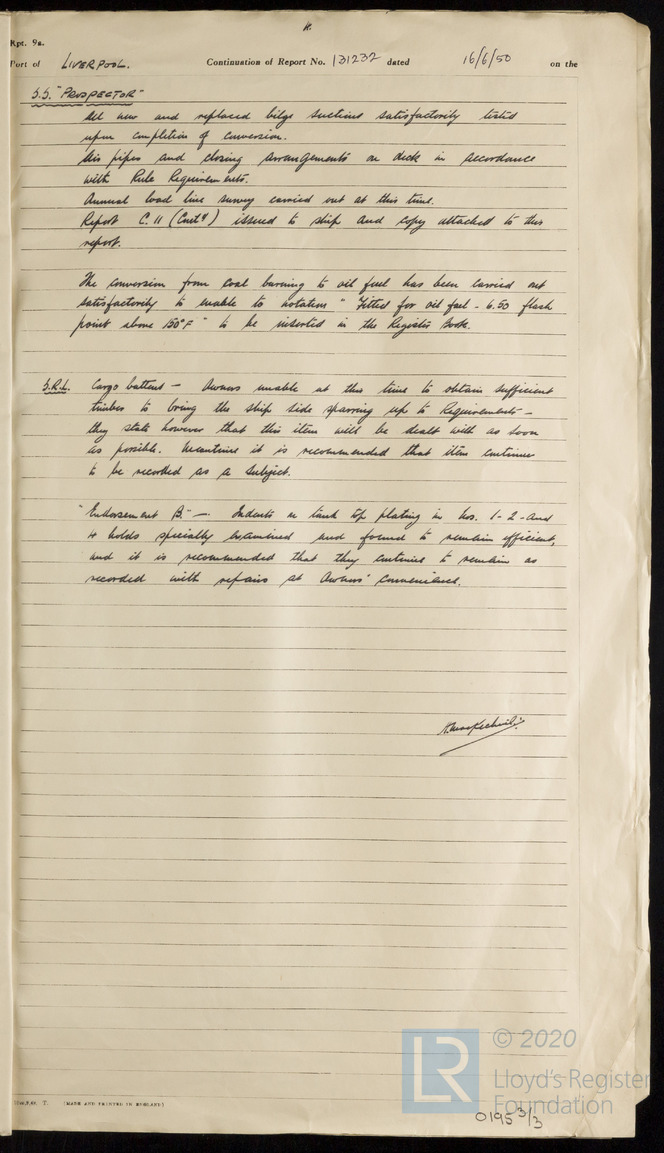 Rpt. 9a.
Port of LIVERPOOL. Continuation of Report No. 131232 dated 16/6/50 on the
S.S. "PROSPECTOR"
All new and replaced bilge suctions satisfactorily tested
upon completion of conversion.
Air pipes and closing arrangements on deck in accordance
with Rule Requirements.
Annual load line survey carried out at this time.
Report C.11 ( ) issued to ship and copy attached to this
report.
The conversion from coal burning to oil fuel has been carried out
satisfactorily to enable to notation "Fitted for oil fuel - 6.50 flash
point above 150°F" to be inserted in the Register Book.
S.R.L. Cargo battens — Owners unable at this time to obtain sufficient
timber to bring the ship side sparring up to Requirements -
they state however that this item will be dealt with as soon
as possible. Meantime it is recommended that item continue
to be recorded as a subject.
"Endorsement B." — Indents in tank top plating in Nos. 1-2-and
4 holds specially examined and found to remain efficient,
and it is recommended that they continue to remain as
recorded with repairs at Owners' convenience.
(MADE AND PRINTED IN ENGLAND)
© 2020
LR
Lloyd's Register
Foundation
0195 3/3